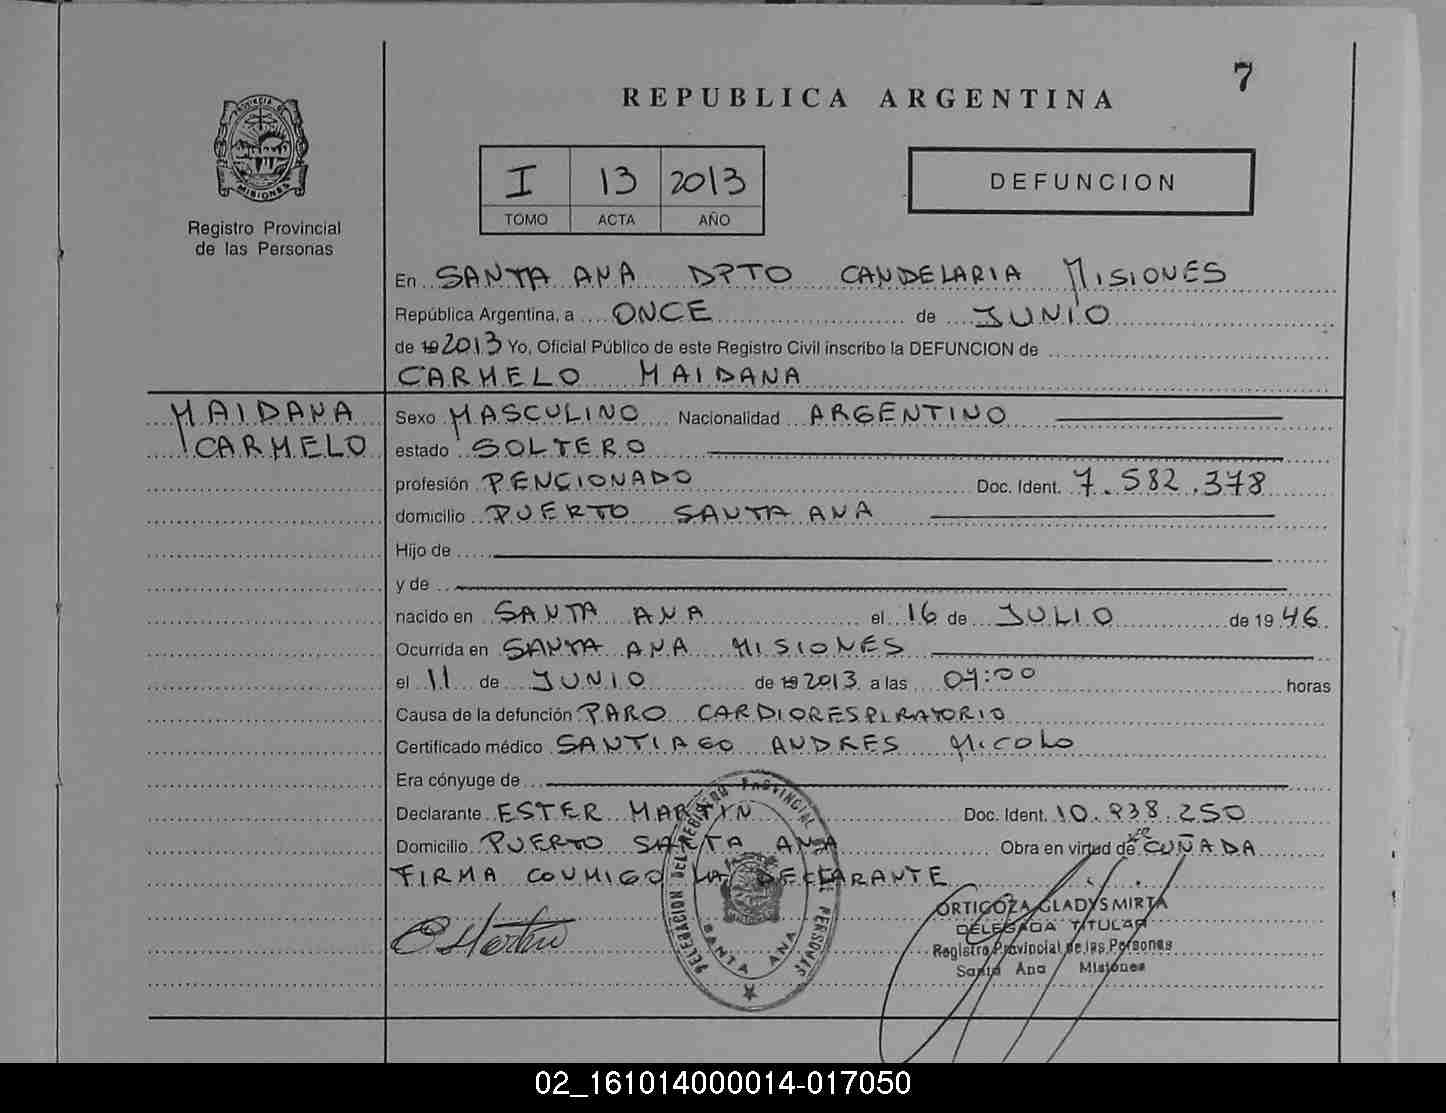 7
REPUBLICA ARGENTINA
PROVINCIA DE
MISIONES
Registro Provincial
de las Personas
I 13 2013
TOMO ACTA AÑO
DEFUNCION
En SANTA ANA DPTO CANDELARIA MISIONES
República Argentina, a ONCE de JUNIO
de 19 2013 Yo, Oficial Público de este Registro Civil inscribo la DEFUNCION de
CARMELO MAIDANA
MAIDANA
CARMELO
Sexo MASCULINO Nacionalidad ARGENTINO
estado SOLTERO
profesión PENCIONADO Doc. Ident. 7.582.378
domicilio PUERTO SANTA ANA
Hijo de
y de
nacido en SANTA ANA el 16 de JULIO de 19 46
Ocurrida en SANTA ANA MISIONES
el 11 de JUNIO de 19 2013 a las 04:00 horas
Causa de la defunción PARO CARDIORESPIRATORIO
Certificado médico SANTIAGO ANDRES MICOLO
Era cónyuge de
Declarante ESTER MARTIN Doc. Ident. 10.938.250
Domicilio PUERTO SANTA ANA Obra en virtud de CUÑADA
FIRMA CONMIGO LA DECLARANTE
E Martin
DELEGACION DEL REGISTRO PROVINCIAL DE LAS PERSONAS
SANTA ANA
ORTIGOZA GLADYS MIRTA
DELEGADA TITULAR
Registro Provincial de las Personas
Santa Ana Misiones
02_161014000014-017050